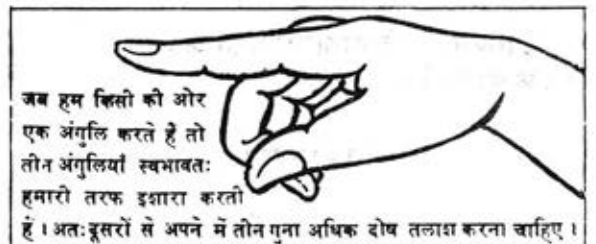 जब हम किसी की ओर
एक अंगुलि करते हैं तो
तीन अंगुलियाँ स्वभावतः
हमारी तरफ इशारा करती
हैं । अतः दूसरों से अपने में तीन गुना अधिक दोष तलाश करना चाहिए ।